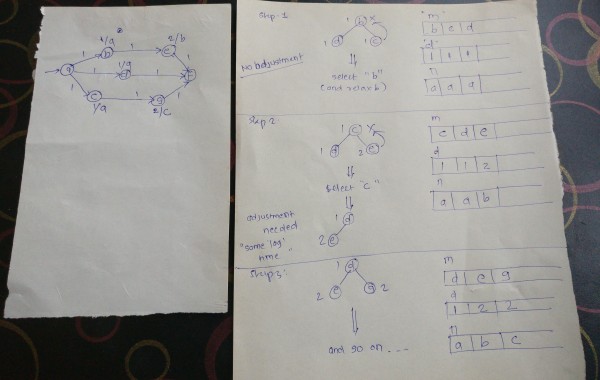 2
1/a
2/b
b
e
1
1
1
a
1
1/a
d
1
1
1
c
1
g
1/a
2/c
step-1
1 b x
1 d 1 c
No adjustment
select "b"
(and relax b)
"m"
b c d
"d"
1 1 1
n
a a a
step 2:
1 c x
1 d 2 e
select "c"
adjustment
needed
"some 'log'
time "
1 d
2 e
m
c d e
d
1 1 2
n
a a b
step 3:
1 d
2 e g 2
and so on ...
m
d e g
d
1 2 2
n
a b c